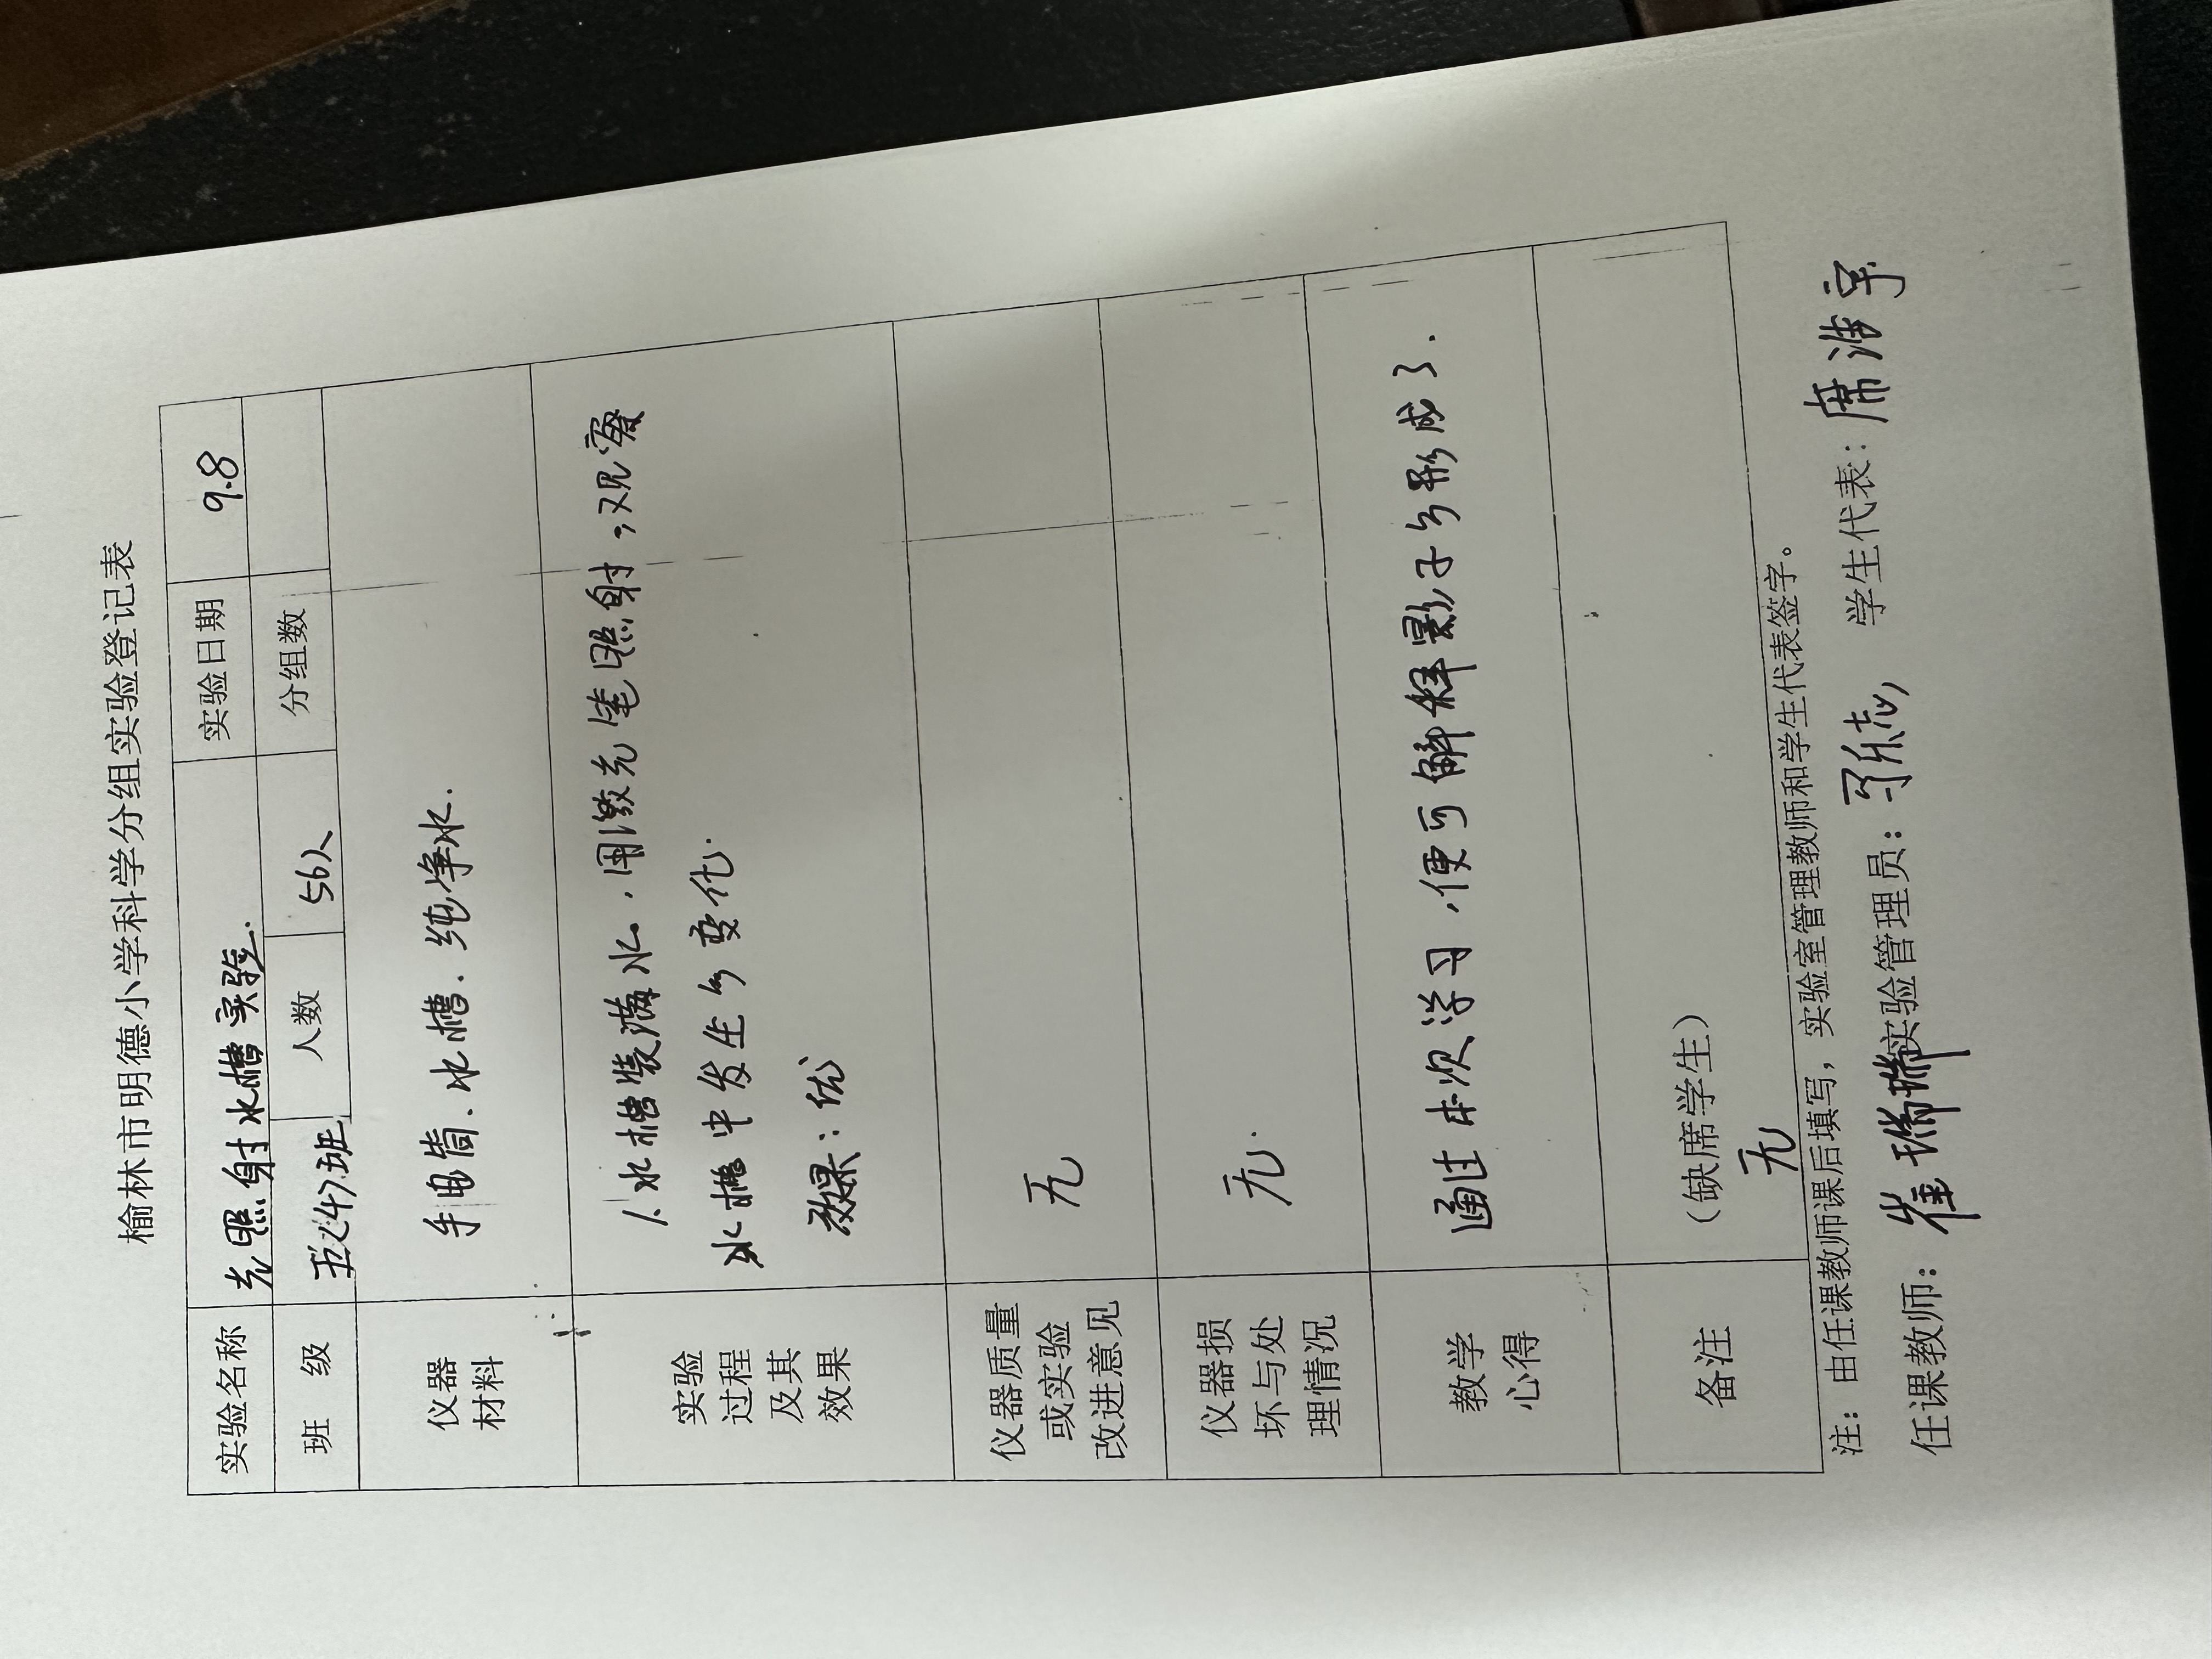 榆林市明德小学科学分组实验登记表
实验名称 光照射水槽实验. 实验日期 9.8
班 级 五(4)班 人数 56人 分组数
仪器材料 手电筒.水槽.纯净水.
实验过程及其效果
1.水槽装满水.用激光笔照射,观察
水槽中发生的变化.
效果:优
仪器质量或实验改进意见 无
仪器损坏与处理情况 无.
教学心得 通过本次学习,便可解释影子的形成了.
备注 (缺席学生)
无
注:由任课教师课后填写,实验室管理教师和学生代表签字。
任课教师:崔瑞瑞 实验管理员: 学生代表:席浩宇